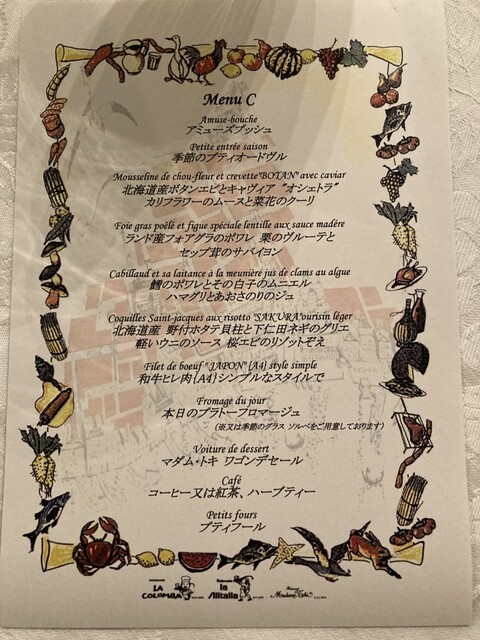 Menu C
Amuse-bouche
アミューズブッシュ
Petite entrée saison
季節のプティオードヴル
Mousseline de chou-fleur et crevette"BOTAN" avec caviar
北海道産ボタンエビとキャヴィア "オシェトラ"
カリフラワーのムースと菜花のクーリ
Foie gras poêlé et figue spéciale lentille aux sauce madère
ランド産フォアグラのポワレ 栗のヴルーテと
セップ茸のサバイヨン
Cabillaud et sa laitance à la meunière jus de clams au algue
鱈のポワレとその白子のムニエル
ハマグリとあおさのりのジュ
Coquilles Saint-jacques aux risotto "SAKURA"ourisin léger
北海道産 野付ホタテ貝柱と下仁田ネギのグリエ
軽いウニのソース 桜エビのリゾットぞえ
Filet de boeuf "JAPON"{A4} style simple
和牛ヒレ肉{A4}シンプルなスタイルで
Fromage du jour
本日のプラトーフロマージュ
(※又は季節のグラス ソルベをご用意しております)
Voiture de dessert
マダム・トキ ワゴンデセール
Café
コーヒー又は紅茶、ハーブティー
Petits fours
プティフール
LA COLOMBA
la Alitalia
Madame Toki